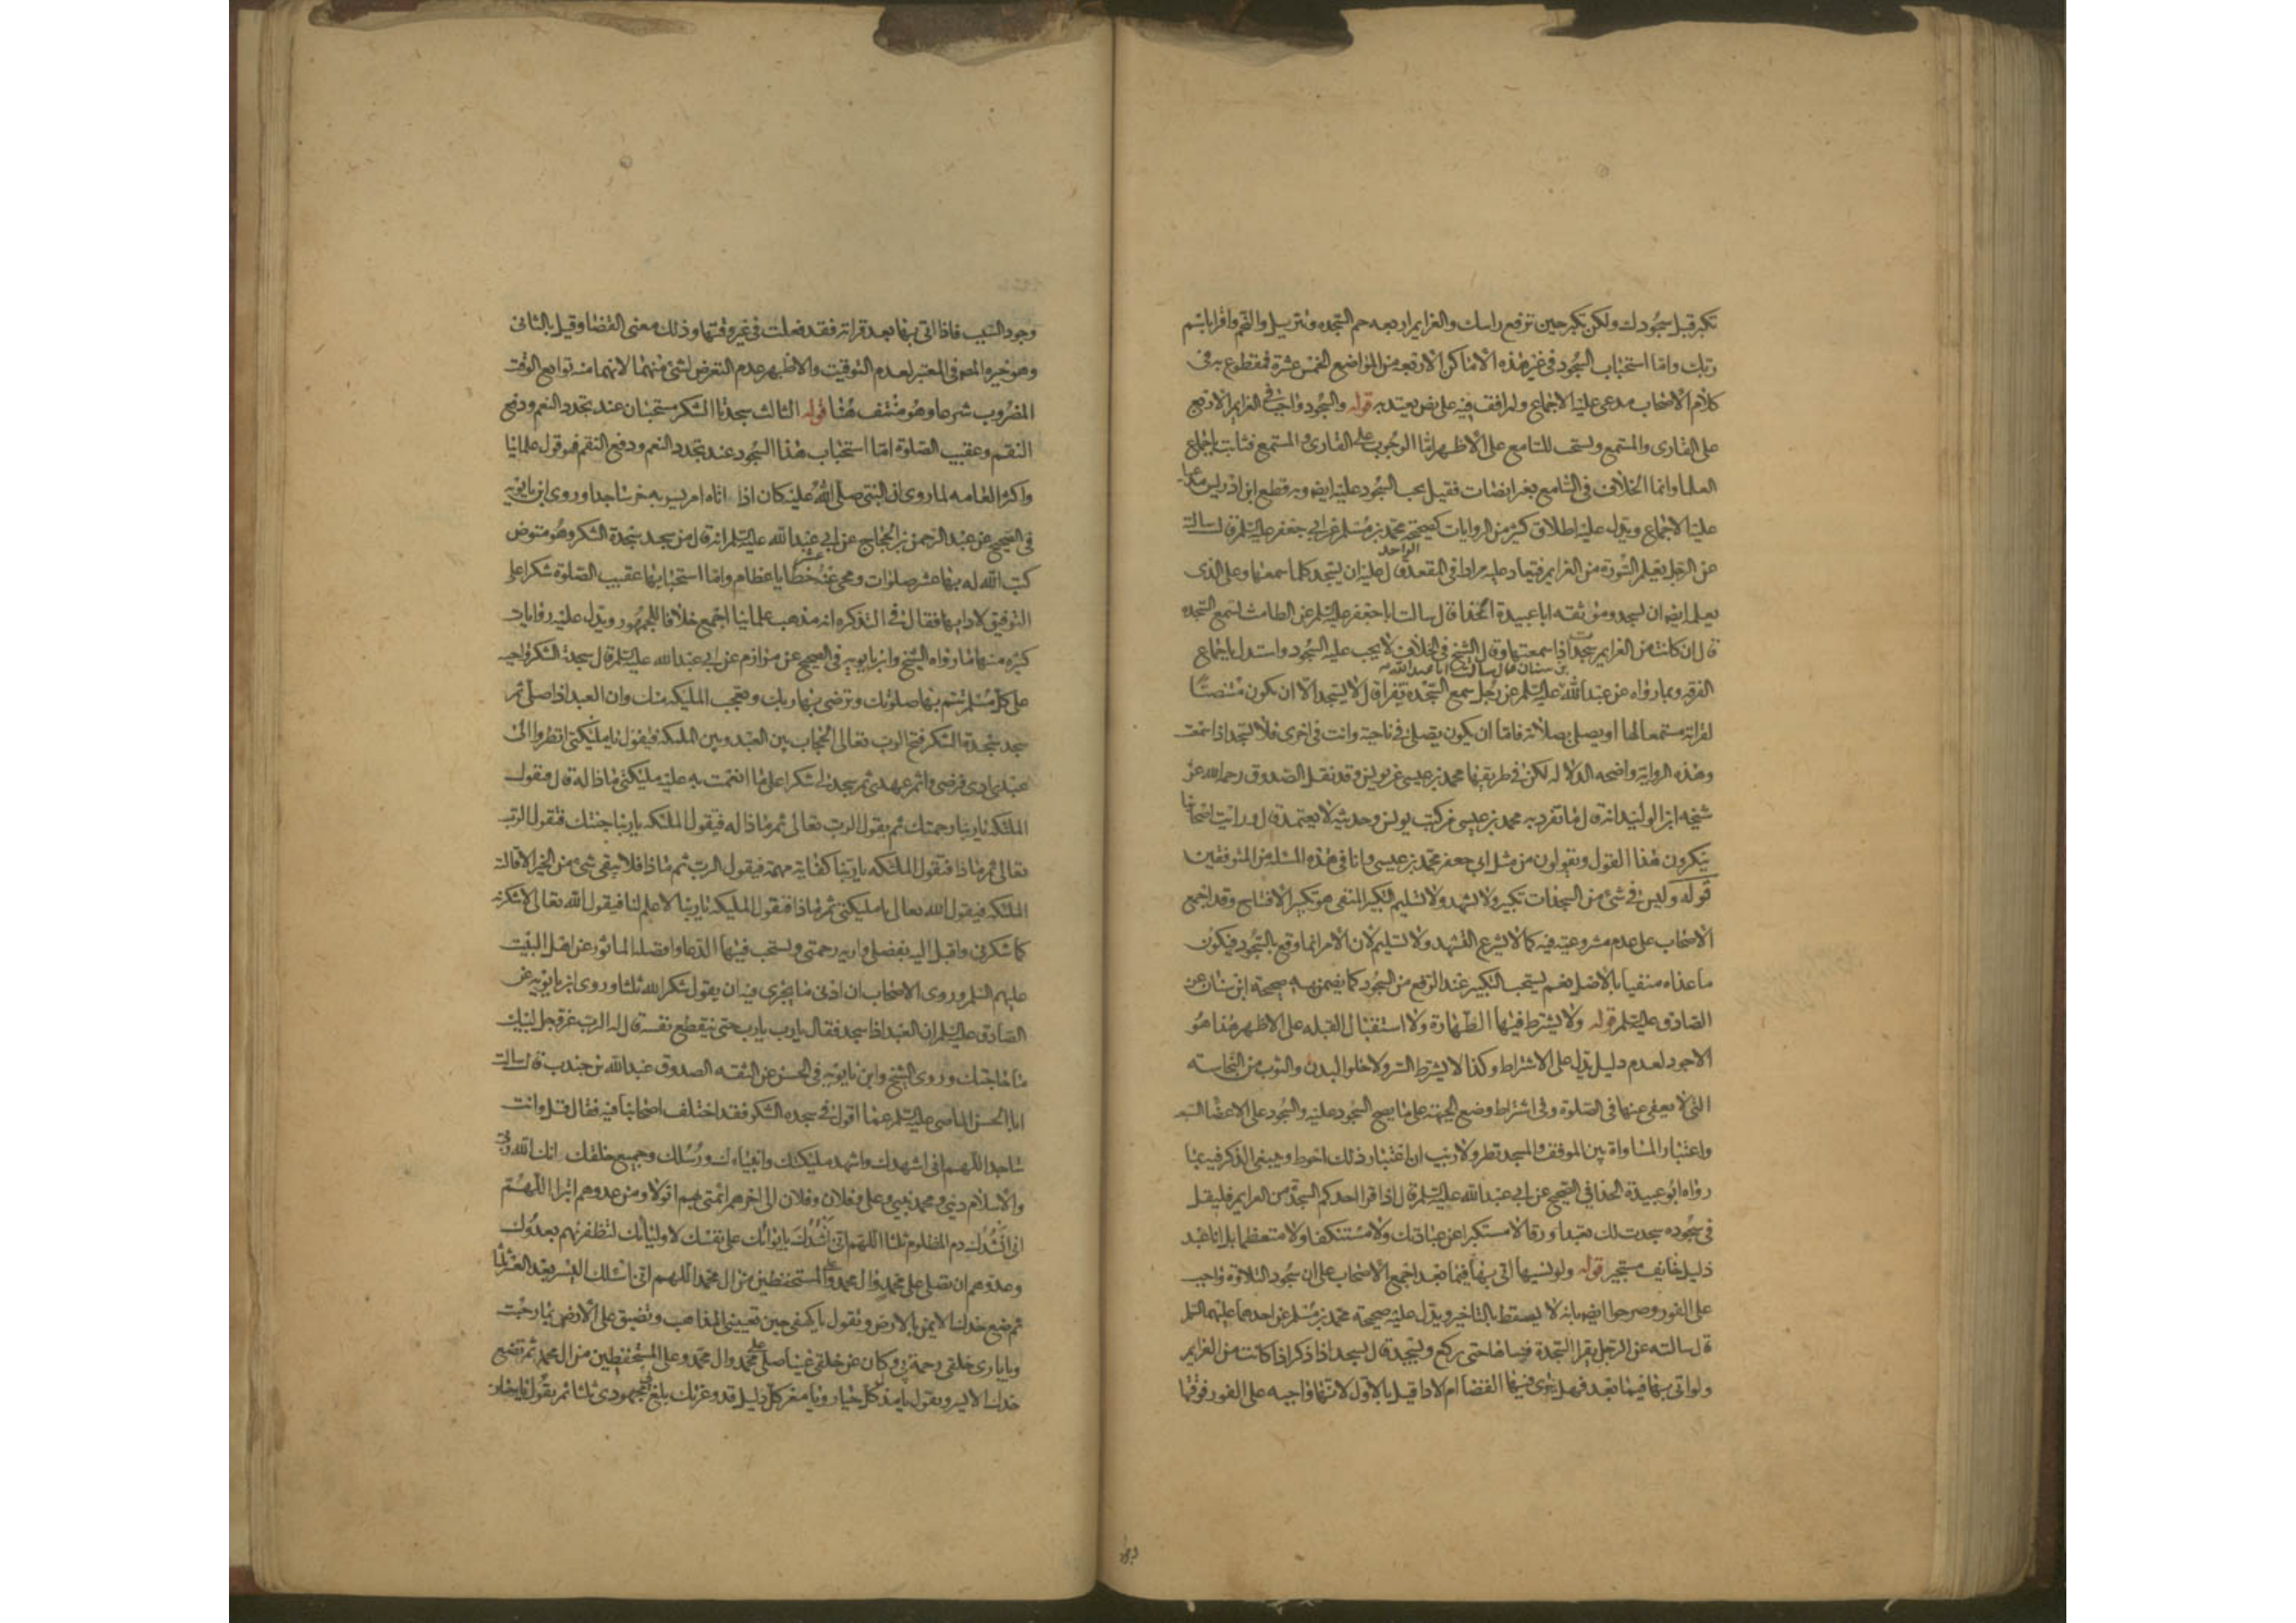 تكبر قبل سجودك ولكن تكبر حين ترفع راسك والعزايم اربعه حم السجده وتنزيل والنجم واقرا باسم
ربك واما استحباب السجود في غير هذه الاماكن الاربعه من المواضع الخمس عشرة فمقطوع به في
كلام الاصحاب مدعى عليه الاجماع ولم اقف فيه على نص يعتد به قوله والسجود واجب في العزايم الاربع
على القارى والمستمع ويستحب للسامع على الاظهر اما الوجوب على القارى والمستمع فثابت باجماع
العلما وانما الخلاف في السامع بغير انصات فقيل يجب السجود عليه ايضا وبه قطع ابن ادريس مدعيا
عليه الاجماع ويدل عليه اطلاق كثير من الروايات كصحيحة محمد بن مسلم عن ابي جعفر عليه السلم قال سالته
عن الرجل يعلم السورة من العزايم فتعاد عليه مرارا في المقعد الواحد قال عليه ان يسجد كلما سمعها وعلى الذي
يعلمه ايضا ان يسجد وموثقه ابا عبيدة الحذا قال سالت ابا جعفر عليه السلم عن الطامث تسمع السجده
قال ان كانت من العزايم سجدت اذا سمعتها وقال الشيخ في الخلاف لا يجب عليه السجود واستدل باجماع
الفرقه وبما رواه عن عبد الله بن سنان قال سالت ابا عبد الله عليه السلم عن رجل سمع السجدة تقرا قال لا يسجد الا ان يكون منصتا
لقراته مستمعا لها او يصلي بصلاته فاما ان يكون يصلي في ناحية وانت في اخرى فلا تسجد اذا سمعت
وهذه الرواية واضحه الدلاله لكن في طريقها محمد بن عيسى عن يونس وقد نقل الصدوق رحمه الله عن
شيخه ابن الوليد انه قال ما تفرد به محمد بن عيسى من كتب يونس وحديثه لا يعتمد قال ورايت اصحابنا
ينكرون هذا القول ويقولون من مثل ابي جعفر محمد بن عيسى وانا في هذه المسله من المتوقفين
قوله وليس في شيء من السجدات تكبير ولا تشهد ولا تسليم التكبير المنفي هو تكبير الافتتاح وقد اجمع
الاصحاب على عدم مشروعيته فيه كما لا يشرع التشهد ولا التسليم لان الامر انما وقع بالسجود فيكون
ما عداه منفيا بالاصل نعم يستحب التكبير عند الرفع من السجود كما تضمنته صحيحة ابن سنان عن
الصادق عليه السلم قوله ولا يشترط فيها الطهارة ولا استقبال القبله على الاظهر هذا هو
الاجود لعدم دليل يدل على الاشتراط وكذا لا يشترط الستر ولا خلو البدن والثوب من النجاسته
التي لا يعفى عنها في الصلوة وفي اشتراط وضع الجبهة على ما يصح السجود عليه والسجود على الاعضا السبعه
واعتبار المساواة بين الموقف والمسجد نظر ولا ريب ان اعتبار ذلك احوط وينبغي الذكر فيه بما
رواه ابو عبيدة الحذا في الصحيح عن ابي عبد الله عليه السلم قال اذا قرا احدكم السجدة من العزايم فليقل
في سجوده سجدت لك تعبدا ورقا لا مستكبرا عن عبادتك ولا مستنكفا ولا متعظما بل انا عبد
ذليل خايف مستجير قوله ولو نسيها اتى بها فيما بعد اجمع الاصحاب على ان سجود التلاوة واجب
على الفور وصرحوا ايضا بانه لا يسقط بالتاخير ويدل عليه صحيحة محمد بن مسلم عن احدهما عليهما السلم
قال سالته عن الرجل يقرا السجدة فينساها حتى يركع ويسجد قال يسجد اذا ذكر اذا كانت من العزايم
ولو اتى بها فيما بعد فهل ينوي فيها القضا ام الادا قيل بالاول لانها واجبه على الفور فوقتها
وجود السبب فاذا اتى بها بعد قراته فقد فعلت في غير وقتها وذلك معنى القضا وقيل بالثاني
وهو خيره المصنف في المعتبر لعدم التوقيت والاظهر عدم التعرض لشئ منهما لانهما من توابع الوقت
المضروب شرعا وهو منتف هنا قوله الثالث سجدتا الشكر مستحبتان عند تجدد النعم ودفع
النقم وعقيب الصلوة اما استحباب هذا السجود عند تجدد النعم ودفع النقم فهو قول علمائنا
واكثر العامه لما روى ان النبي صلى الله عليه كان اذا اتاه امر يسر به خر ساجدا وروى ابن بابويه
في الصحيح عن عبد الرحمن بن الحجاج عن ابي عبد الله عليه السلم انه قال من سجد سجدة الشكر وهو متوض
كتب الله له بها عشر صلوات ومحى عنه عشر خطايا عظام واما استحبابها عقيب الصلوة شكرا على
التوفيق لادائها فقال في التذكره انه مذهب علمائنا اجمع خلافا للجمهور ويدل عليه روايات
كثيره منها ما رواه الشيخ وابن بابويه في الصحيح عن مرازم عن ابي عبد الله عليه السلم قال سجدة الشكر واجبه
على كل مسلم تتم بها صلوتك وترضى بها ربك وتعجب المليكه منك وان العبد اذا صلى ثم
سجد سجدة الشكر فتح الرب تعالى الحجاب بين العبد وبين الملئكه فيقول يا مليكتي انظروا الى
عبدي ادى فرضي واتم عهدي ثم سجد لي شكرا على ما انعمت به عليه مليكتي ماذا له قال فتقول
الملئكه يا ربنا رحمتك ثم يقول الرب تعالى ثم ماذا له فيقول الملئكه يا ربنا جنتك فيقول الرب
تعالى ثم ماذا فتقول الملئكه يا ربنا كفايه مهمه فيقول الرب ثم ماذا فلا يبقى شئ من الخير الا قالته
الملئكه فيقول الله تعالى يا مليكتي ثم ماذا فتقول المليكه يا ربنا لا علم لنا فيقول الله تعالى لاشكرنه
كما شكرني واقبل اليه بفضلي واريه رحمتي ويستحب فيها الدعا وافضله الماثور عن اهل البيت
عليهم السلم وروى الاصحاب ان ادنى ما يجزي فيه ان يقول شكرا لله ثلثا وروى ابن بابويه عن
الصادق عليه السلم ان العبد اذا سجد فقال يا رب يا رب حتى ينقطع نفسه قال له الرب عز وجل لبيك
ما حاجتك وروى الشيخ وابن بابويه في الحسن عن الثقه الصدوق عبد الله بن جندب قال سالت
ابا الحسن الماضي عليه السلم عما اقول في سجده الشكر فقد اختلف اصحابنا فيه فقال قل وانت
ساجد اللهم اني اشهدك واشهد مليكتك وانبياءك ورسلك وجميع خلقك انك الله ربي
والاسلام ديني ومحمد نبيي وعلي وفلان وفلان الى اخرهم ائمتي بهم اتولا ومن عدوهم اتبرا اللهم
اني انشدك دم المظلوم ثلثا اللهم اني انشدك بايوائك على نفسك لاوليائك لتظفرنهم بعدوك
وعدوهم ان تصلي على محمد وال محمد وعلى المستحفظين من ال محمد اللهم اني اسئلك اليسر بعد العسر ثلثا
ثم ضع خدك الايمن بالارض وتقول يا كهفي حين تعييني المذاهب وتضيق علي الارض بما رحبت
ويا باري خلقي رحمة بي وكان عن خلقي غنيا صل على محمد وال محمد وعلى المستحفظين من ال محمد ثم تضع
خدك الايسر وتقول يا مذل كل جبار ويا معز كل ذليل قد وعزتك بلغ مجهودي ثلثا ثم يقول يا حنان
وجود